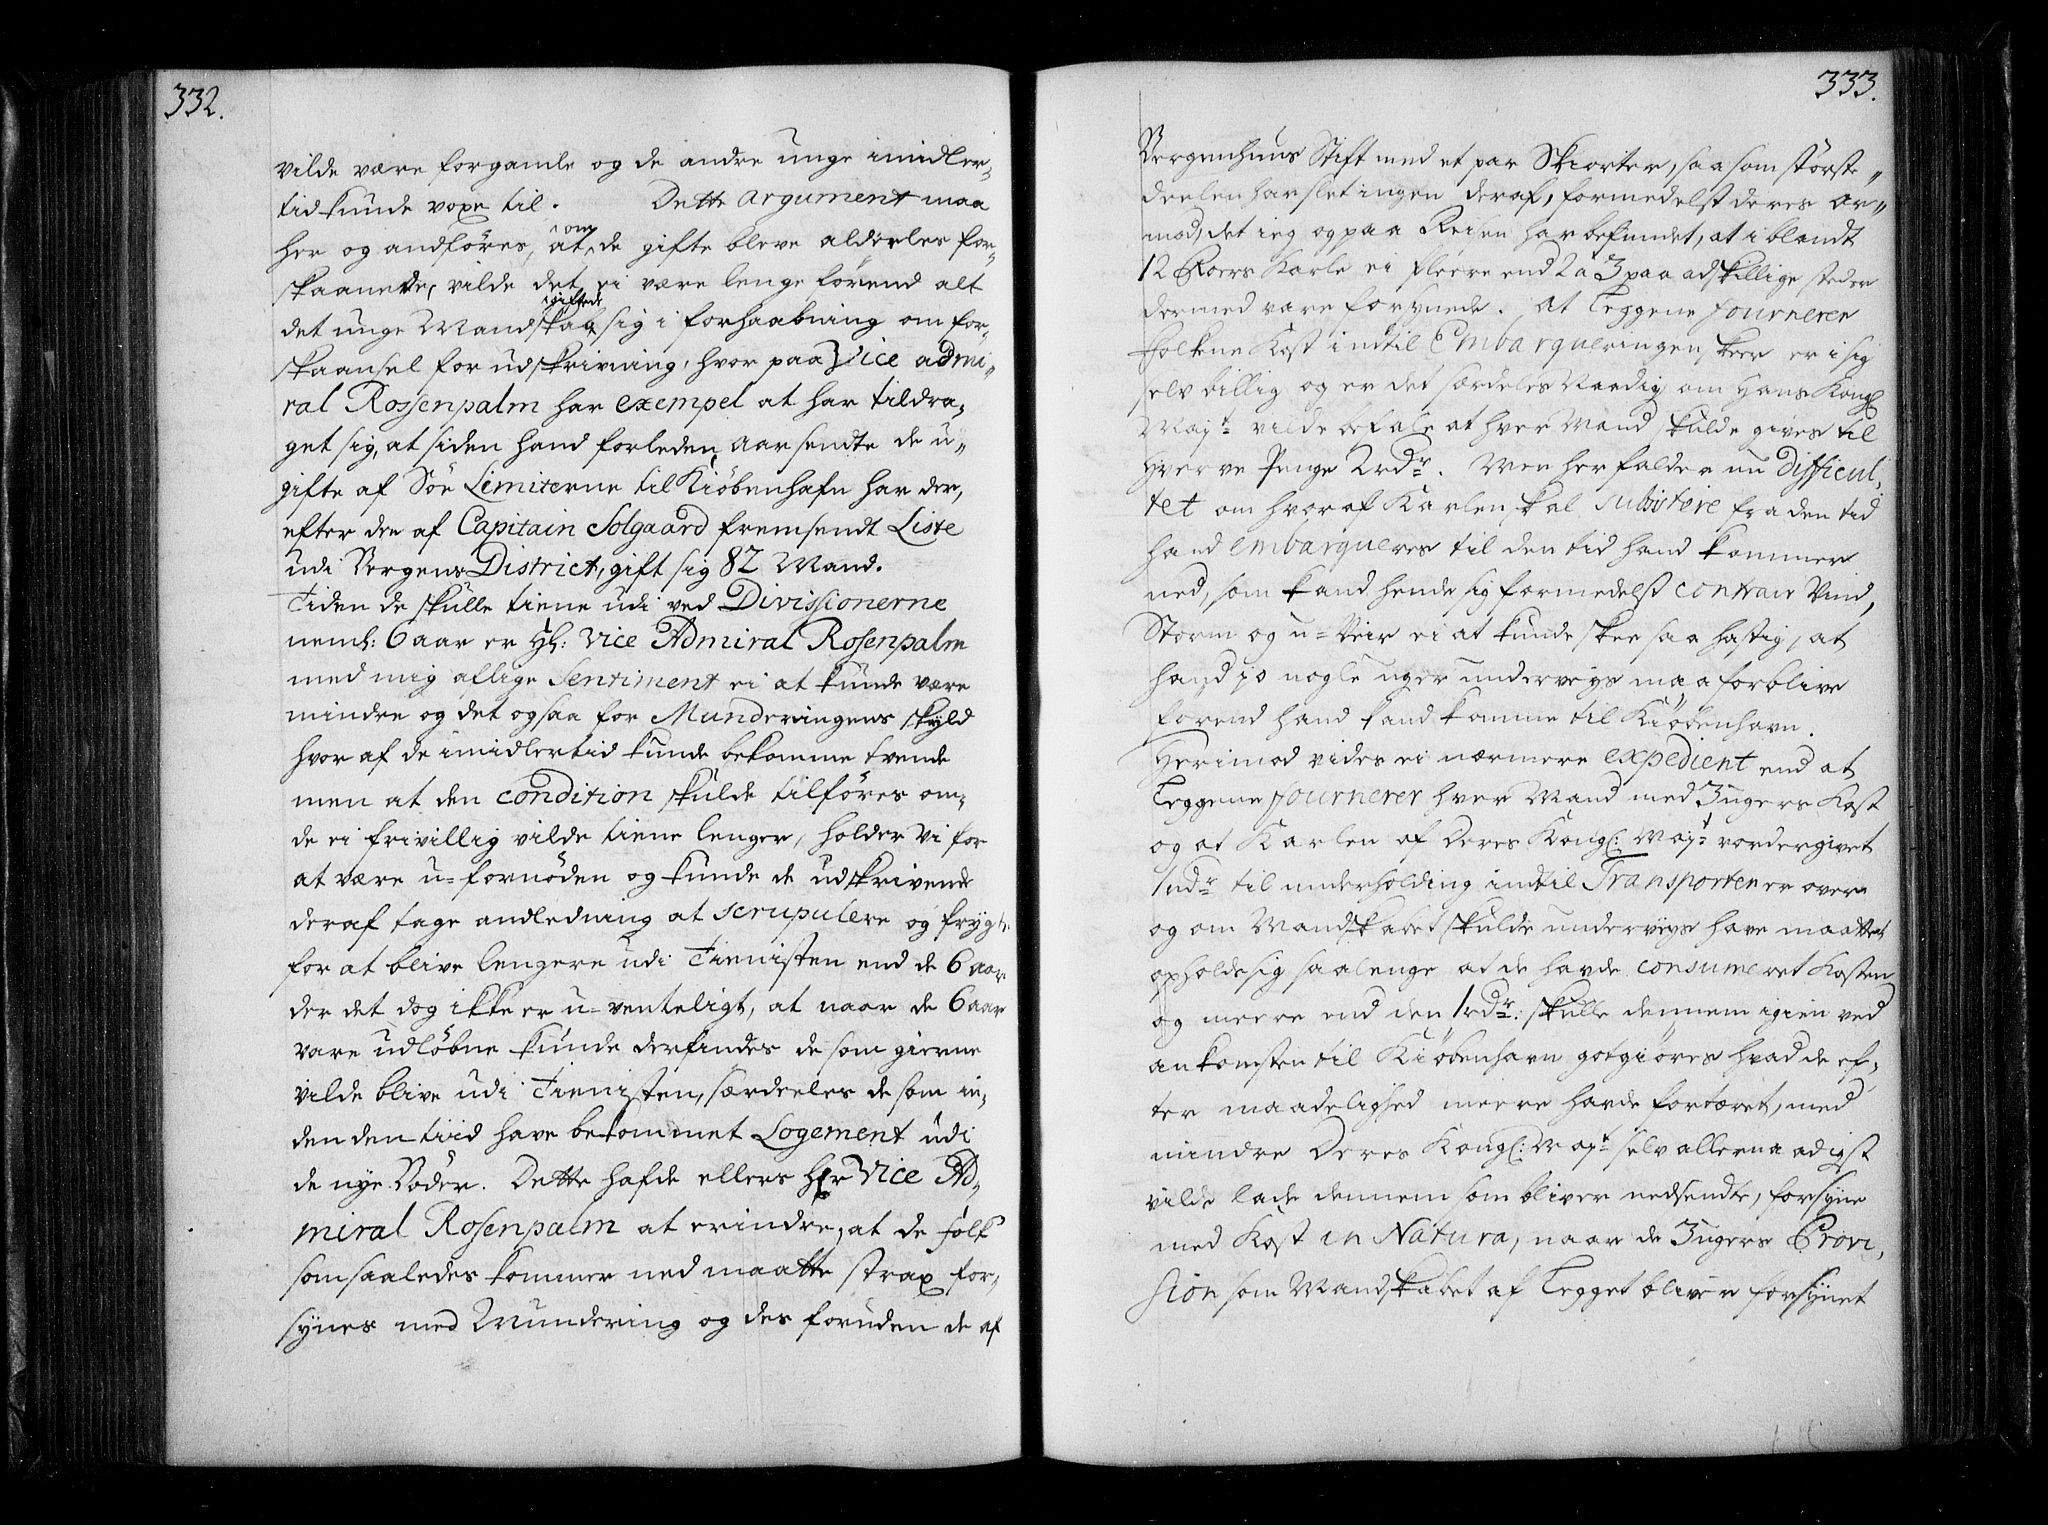 332.
vilde være forgamle og de andre unge imidler-
tid kunde voxe til. Dette argument maa
her og andføres, at om de gifte bleve alderles for-
skaanede, vilde det ei være lenge førend alt
det unge Mandskab giftede sig i forhaabning om for-
skaansel for udskrivning, hvor paa Vice admi-
ral Rossenpalm har exempel at har tildra-
get sig, at siden hand forleden aar sendte de u-
gifte af Söe Limiterne til Kiöbenhafn har der,
efter den af Capitain Solgaard fremsendt Liste
udi Bergens District, gift sig 82 Mand.
Tiden de skulle tiene udi ved Divissionerne
neml: 6 aar er Hl: Vice Admiral Rosenpalm
med mig aflige Sentiment ei at kunde være
mindre og det ogsaa for Munderingens skyld
hvor af de imidlertid kunde bekomme tvende
men at den condition skulde tilföres om-
de ei frivillig vilde tiene lenger, holder vi for
at være u-fornöden og kunde de udskrivende
deraf tage andledning at scrupulere og frygte
for at blive lengere udi Tienisten end de 6 aar
der det dog ikke er u-venteligt, at naar de 6 aar
vare udløbne kunde derfindes de som gierne
vilde blive udi Tienisten, særdeeles de som in-
den den tiid have bekommet Logement udi
de nye Boder. Dette hafde ellers Hr Vice Ad-
miral Rosenpalm at erindre, at de folk
som saaledes kommer ned maatte strax for-
synes med Mundering og des foruden de af
333.
Bergenhuus Stift med et par Skiorter, saasom störste
deelen har slet ingen deraf, formedelst deres ar-
mod, det ieg og paa Reisen har befundet, at iblandt
12 Roers Karle ei fleere end 2 a 3 paa adskillige steder
dermed vare forsynede. At Leggene fournerer
folkene Kost indtil Embarqueringen skeer er i sig
selv billig og er det særdeles Naadig om Hans Kongl
Mayt. vilde befale at hver Mand skulde gives til
Hverve Penge 2 rdr. Men her falder nu difficul-
tet om hvoraf Karlen skal subsistere fra den tid
hand embarqueres til den tid hand kommer
ned, som kand hende sig formedelst contrair Vind,
Storm og u-Veir ei at kunde skee saa hastig, at
hand jo nogle uger underveys maa forblive
forend hand kand komme til Kiöbenhavn.
Herimod vides ei nærmere expedient end at
Leggene fournerer hver Mand med 3 ugers Kost
og at Karlen af Deres Kongl: Mayt vorder givet
1 rdr til underholding indtil Transporten er over
og om Mandskabet skulde underveys have maattet
opholde sig saalenge at de havde consumeret Kosten
og meere end den 1 rdr: skulle dennem igien ved
ankomsten til Kiöbenhavn gotgiöres hvad de ef-
ter maadelighed meere havde fortæret, med
mindre Deres Kongl: Mayt selv allernaadigst
vilde lade dennem som bliver nedsendte, forsyne
med Kost in Natura, naar de 3 ugers Provi-
sion som Mandskabet af Legget bliver forsynet